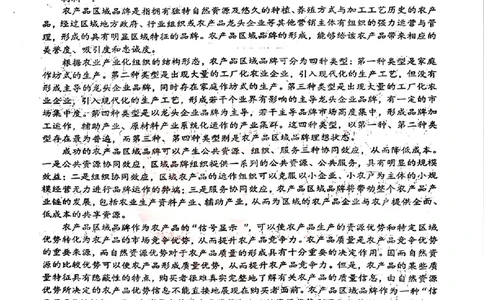 农产品区域品牌是指拥有独特自然资源及悠久的种植、养殖方式与加工工艺历史的农产
品,经过区域地方政府、行业组织或农产品龙头企业等其他营销主体有组织的强力运营与管
理,形成的具有明显区域特征的品牌。农产品区域品牌的形成,能够给该农产品带来相应的
美誉度、吸引度和忠诚度。
根据农业产业化组织的结构形态,农产品区域品牌可分为四种类型:第一种类型是家庭
作坊式的生产。第二种类型是出现大量的工厂化农业企业,引入现代化的生产工艺,但没有
形成主导的龙头企业品牌,同时存在家庭作坊式的生产。第三种类型是出现大量的工厂化农
业企业,引入现代化的生产工艺,形成若干个业界有影响的主导龙头企业品牌,有一定的市
场集中度。第四种类型是以龙头企业品牌为主导,若干主导品牌市场高度集中,形成品牌加
工运作,辅助产业、原材料产业系统化运作的产业集群。这四种类型,以第一种、第二种类
型存在最为普遍,而第三种、第四种类型则是农产品区域品牌理想状态。
成功的农产品区域品牌可以产生公共资源、组织、服务三种协同效应,从而降低成本。
一是公共资源协同效应,区域品牌组织提供一系列的公共资源、公共服务,具有明显的规模
效益;二是组织协同效应,区域农产品的运作组织可以克服以小企业、小农户为主体的小规
模经营无力进行品牌运作的弊端;三是服务协同效应,农产品区域品牌将带动整个农产品产
业链的发展,包括农业生产资料产业、辅助产业,从而为区域的农产品企业与农户提供全面、
低成本的共享资源。
农产品区域品牌作为农产品的“信号显示”,可以使农产品生产的资源优势和特定区域
优势转化为农产品的市场竞争优势,从而提升农产品竞争力。农产品质量是农产品竞争优势
的重要来源,而自然资源优势对于农产品质量的形成具有十分重要的决定作用。因而自然资
源的比较优势可以使农产品形成质量优势,从而提升农产品竞争力。但是,农产品的某些质
量特征具有隐蔽性的特点,购买者很难真实完整地了解有关农产品的质量信息,由自然资源
优势所决定的农产品优势信息不能直接地展现在购买者面前。农产品区域品牌作为一种“信